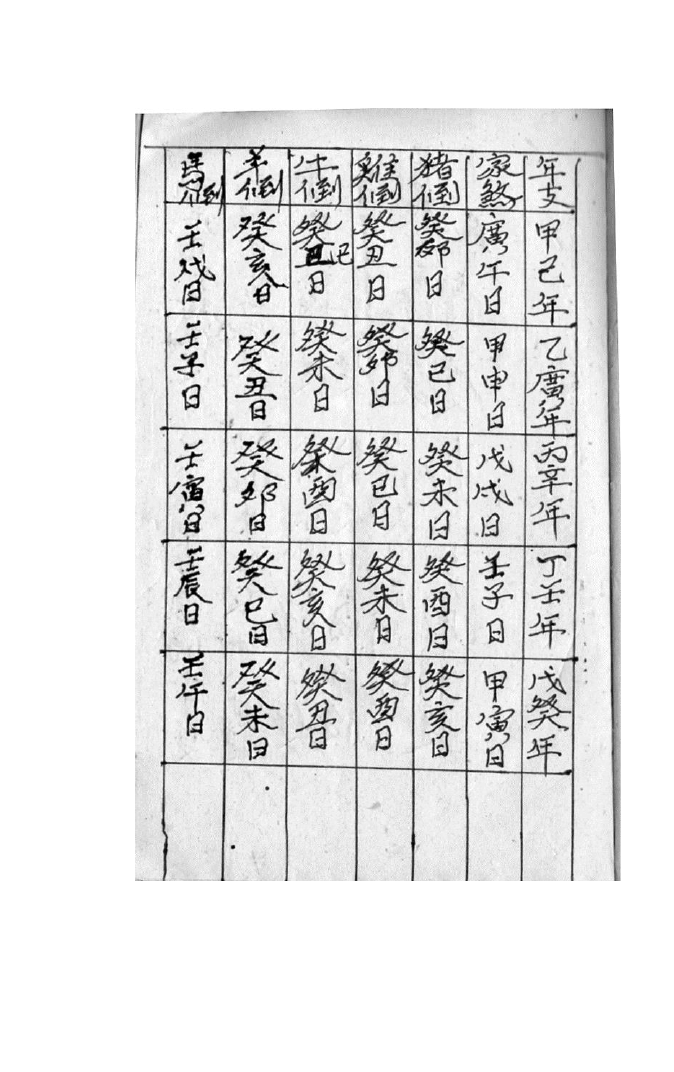 年支 甲己年 乙廣年 丙辛年 丁壬年 戊癸年
家煞 廣午日 甲申日 戊戌日 壬子日 甲寅日
猪倒 癸卯日 癸巳日 癸未日 癸酉日 癸亥日
雞倒 癸丑日 癸卯日 癸巳日 癸未日 癸酉日
牛倒 癸日 癸未日 癸酉日 癸亥日 癸丑日
羊倒 癸亥日 癸丑日 癸卯日 癸巳日 癸未日
馬倒 壬戌日 壬子日 壬寅日 壬辰日 壬午日